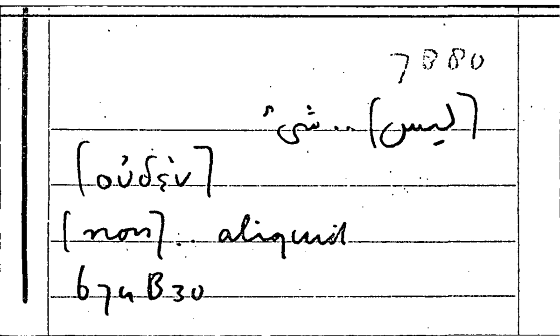 7880
[ليس] .. شيء
[οὐδὲν]
[non] .. aliquid
674B30